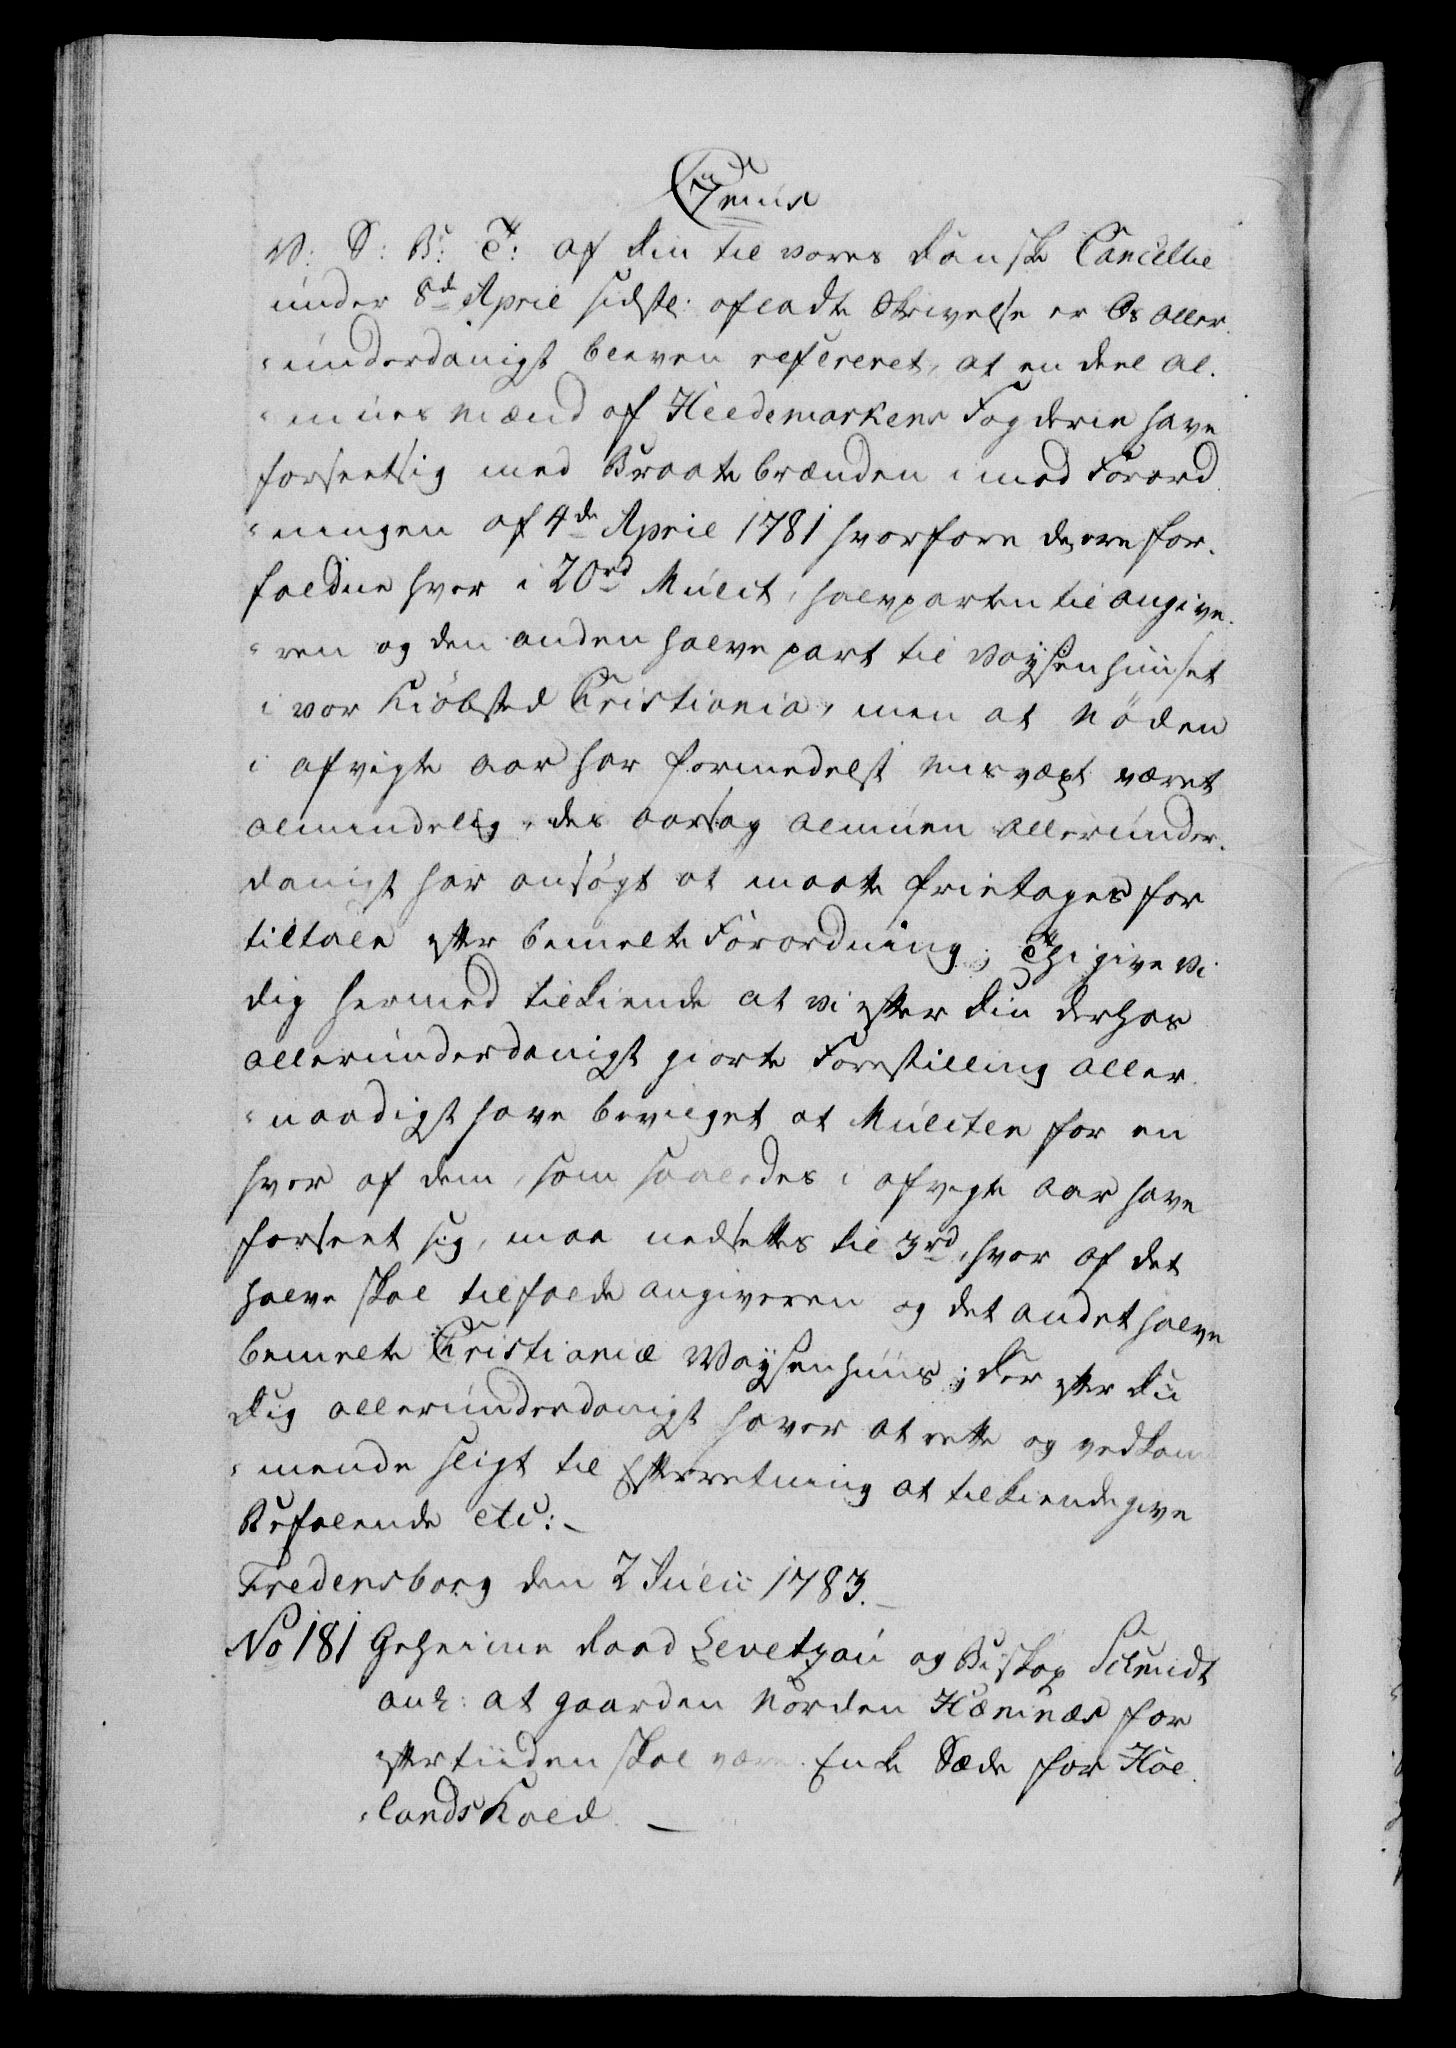 Junius
V: S: G: T: af din til vores danske Cancellie
under 8de April sidstl: afladte Skrivelse er Os aller
=underdanigst bleven refereret, at en deel Al=
=mues Mænd af Heedemarkens Fogderie have
forseet sig med Braatebrænden imod Forord
=ningen af 4de April 1781 hvorfore de ere for=
faldne hver i 20rd Mulct, halvparten til angive=
=ren og den anden halve part til Vaysenhuuset
i vor Kiöbsted Christiania, men at Nöden
i afvigte aar har formedelst Misvæxt været
almindelig, des aarsag Almuen allerunder=
danigst har ansögt at maatte frietages for
tiltale efter bemelte Forordning; Thi give Vi
dig hermed tilkiende at vi efter din derhos
allerunderdanigst giorte Forestilling aller=
=naadigst have bevilget at Mulcten for en
hver af dem, som saaledes i afvigte aar have
forseet sig, maa nedsettes til 3rd, hvor af det
halve skal tilfalde angiveren og det andet halve
bemelte Christianiæ Waysenhuus; der efter du
dig allerunderdanigst haver at rette og vedkom
=mende sligt til Efterretning at tilkiendegive
Befalende etc: –
Fredensborg den 2 Julii 1783. –
No 181 Geheime Raad Levetzau og Biskop Schmidt
anl: at gaarden Norden Hæmnæs for
eftertiiden skal være Enke Sæde for Höe=
=lands Kald. –